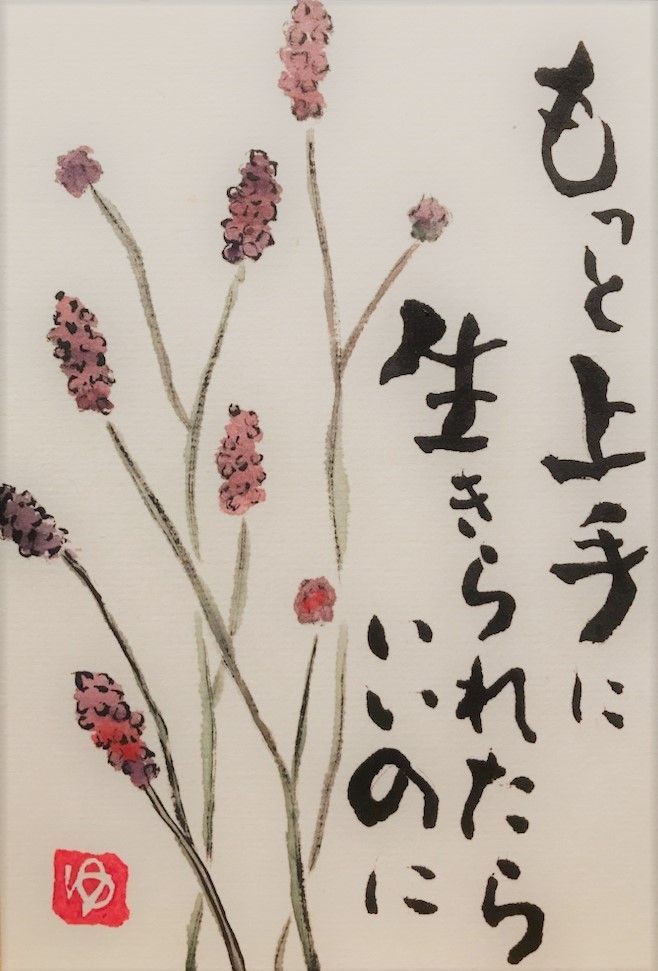 もっと上手に
生きられたら
いいのに
ゆ